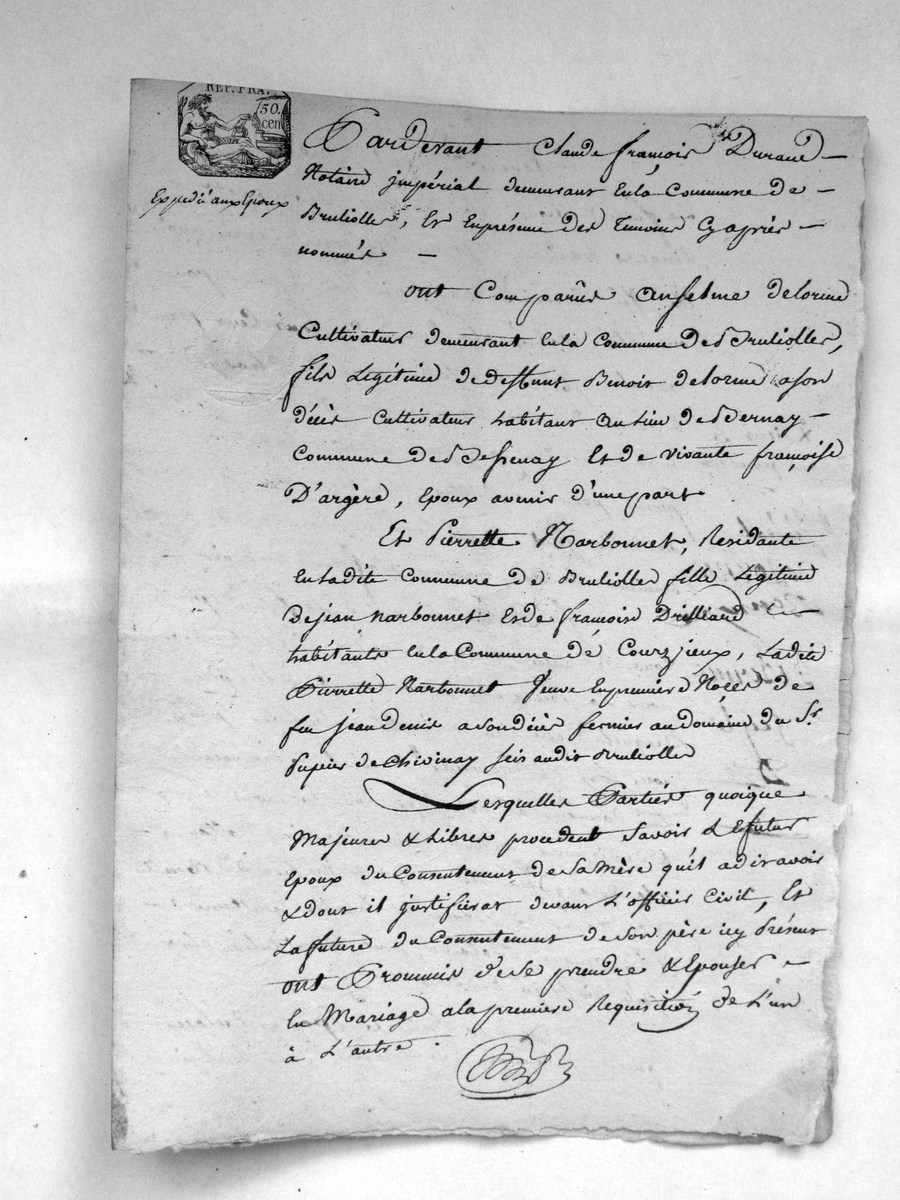 REP. FRA.
50.
cen
Expedié aux Epoux
Pardevant Claude françois Durand
Notaire impérial demeurant En la Commune de
Bruliolles, Et En présence des Temoins Cy après
nommés
ont Comparûs Anselme Delorme
Cultivateur demeurant En la Commune de Brulioller,
fils Legitime de deffunt Benoit Delorme a son
décès Cultivateur habitant au Lieu de Bernay
Commune de Bessenay Et de vivante françoise
D'argère, Epoux avenir d'une part
Et Pierrette Narbonnet, Residante
En Ladite Commune de Brulioller fille Legitime
De jean Narbonnet Et de françoise Drilliard
habitants En la Commune de Courzieux, Ladite
Pierrette Narbonnet Veuve En premiere Noces de
feu jean denis a son décès fermier au domaine du Sr.
Pupier de Chivinay sis audit Bruliolle
Lesquelles Parties quoique
Majeures & Libres procedent Savoir Le futur
Epoux du Consentement de Sa Mère qu'il a dit avoir
& dont il justifierat devant L'officier Civil, Et
La future du Consentement de Son père icy Présent
ont Prommis de Se prendre & Epouser
En Mariage a la premiere Requisition de L'un
à L'autre.